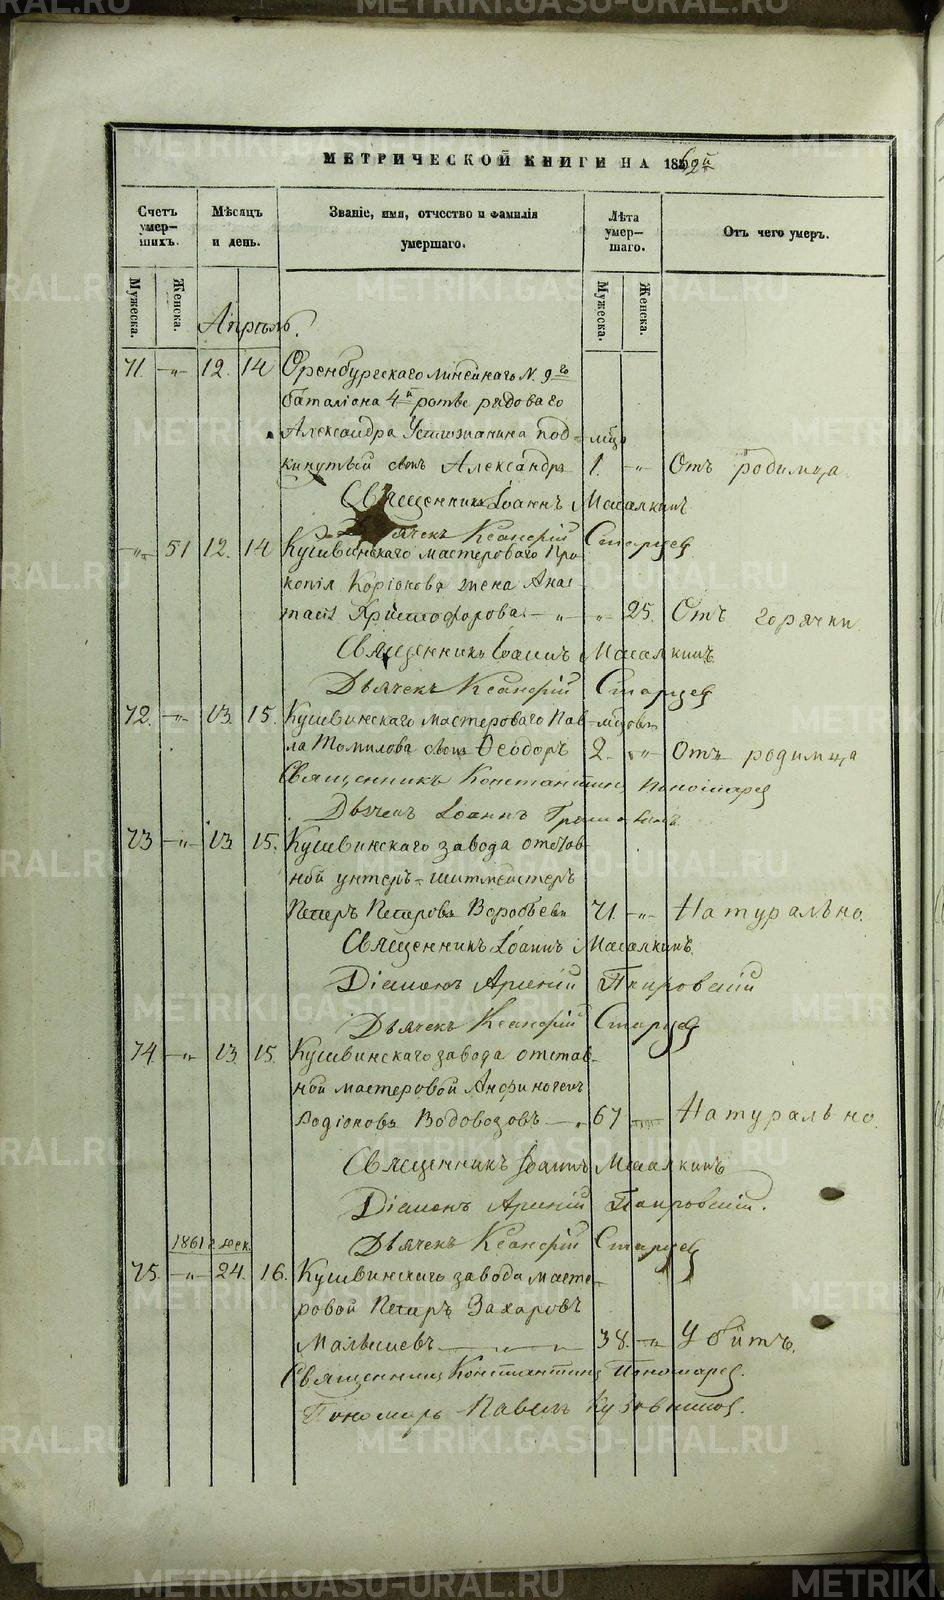 МЕТРИЧЕСКОЙ КНИГИ НА 1862й
Счетъ умер-шихъ.
Мѣсяцъ и день.
Званіе, имя, отчество и фамилія умершаго.
Лѣта умер-шаго.
Отъ чего умеръ.
Мужеска. Женска. Мужеска. Женска.
Апрѣль.
71. -„- 12. 14 Оренбургскаго линейнаго N. 9го
баталіона 4й роты рядоваго
Александра Устюжанина под-
кинутый сынъ Александръ 1. -„- Отъ родимца
мцо
Священникъ Іоаннъ Масалкинъ
Дьячекъ Ксанфій Старцев
-„- 51 12. 14 Кушвинскаго мастероваго Про
копія Коріокова жена Анас
тасія Христофорова -„- „ 25. Отъ горячки
Священникъ Іоаннъ Масалкинъ
Дьячекъ Ксанфій Старцев
72. -„- 13 15. Кушвинскаго мастероваго Пав-
ла Томилова сынъ Ѳеодоръ 2. -„- Отъ родимца
Священникъ Константинъ Пономарев
Дьячекъ Іоаннъ
73 -„- 13 15. Кушвинскаго завода отстав-
ной унтеръ-шихтмейстеръ
Петръ Петровъ Воробьевъ 71 -„- Натурально.
Священникъ Іоаннъ Масалкинъ.
Діаконъ Арсеній
Дьячекъ Ксанфій Старцев
74. -„- 13 15. Кушвинскаго завода отстав-
ной мастеровой Анфиногенъ
Родіоновъ Водовозовъ 67 Натурально.
Священникъ Іоаннъ Масалкинъ
Діаконъ Арсеній
Дьячекъ Ксанфій Старцев
1861 г. дек.
75. -„- 24. 16. Кушвинскаго завода масте-
ровой Петръ Захаровъ
Малышевъ 38. -„- Убитъ.
Священникъ Константинъ Пономарев.
Пономарь Павелъ Кузовников.
METRIKI.GASO-URAL.RU